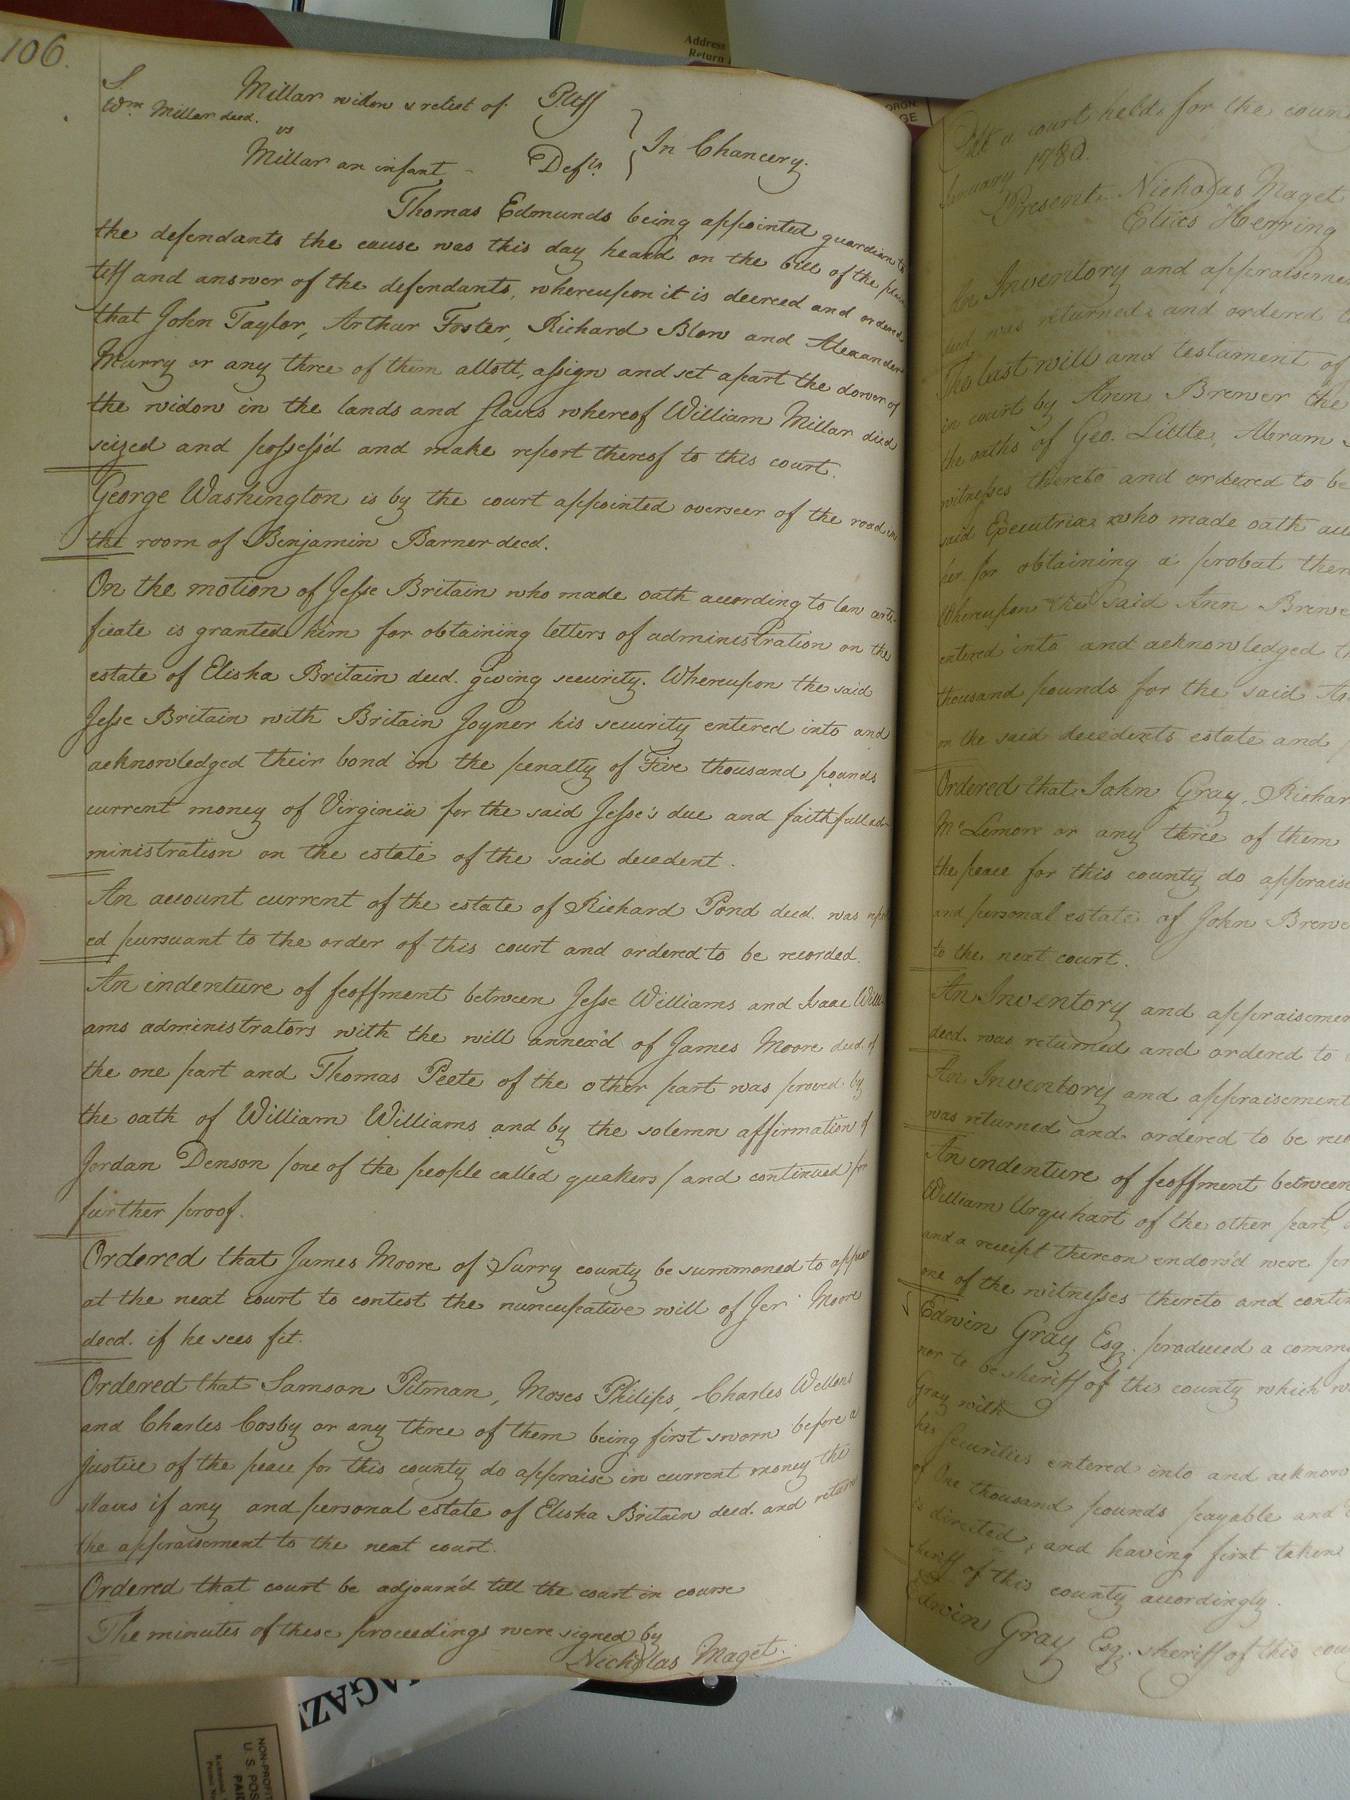 106.
Millar widow & relict of Pltff
Wm. Millar decd.
vs
In Chancery.
Millar an infant - Defts.
Thomas Edmunds being appointed guardian to
the defendants the cause was this day heard on the bill of the plain
tiff and answer of the defendants, whereupon it is decreed and ordered
that John Taylor, Arthur Foster, Richard Blow and Alexander
Murry or any three of them allott, assign and set apart the dower of
the widow in the lands and slaves whereof William Millar died
seized and possess'd and make report thereof to this court.
George Washington is by the court appointed overseer of the road in
the room of Benjamin Barner decd.
On the motion of Jesse Britain who made oath according to law certi-
ficate is granted him for obtaining letters of administration on the
estate of Elisha Britain decd. giving security. Whereupon the said
Jesse Britain with Britain Joyner his security entered into and
acknowledged their bond in the penalty of Five thousand pounds
current money of Virginia for the said Jesse's due and faithfull ad-
ministration on the estate of the said decedent.
An account current of the estate of Richard Pond decd. was
ed pursuant to the order of this court and ordered to be recorded.
An indenture of feoffment between Jesse Williams and Isaac Willi-
ams administrators with the will annex'd of James Moore decd. of
the one part and Thomas Peete of the other part was proved by
the oath of William Williams and by the solemn affirmation of
Jordan Denson /one of the people called quakers/ and continued for
further proof.
Ordered that James Moore of Surry county be summoned to appear
at the next court to contest the nuncupative will of Jer. Moore
decd. if he sees fit.
Ordered that Samson Pitman, Moses Philips, Charles Wellons
and Charles Cosby or any three of them being first sworn before a
justice of the peace for this county do appraise in current money the
slaves if any and personal estate of Elisha Britain decd. and return
the appraisement to the next court.
Ordered that court be adjourn'd till the court in course
The minutes of these proceedings were signed by
Nicholas Maget.
Address
Return
At a court held for the coun
January 1780.
Present. Nicholas Maget
Herring
An Inventory and appraiseme
was returned and ordered t
The last will and testament of
in court by Ann Brewer the
the oaths of Geo. Little, Abram
witnesses thereto and ordered to be
said Executrix who made oath acc
her for obtaining a probat ther
Whereupon the said Ann Brewe
entered into and acknowledged th
thousand pounds for the said
on the said decedents estate and
Ordered that John Gray, Richar
McLemore or any three of them
the peace for this county do appraise
and personal estate of John Brewe
to the next court.
An Inventory and appraisemen
decd. was returned and ordered to
An Inventory and appraisement
was returned and ordered to be rec
An indenture of feoffment between
William Urquhart of the other part,
and a receipt thereon endors'd were pr
one of the witnesses thereto and contin
Edwin Gray Esq. produced a comm
nor to be sheriff of this county which w
Gray with
his securities entered into and acknow
of One thousand pounds payable and
is directed, and having first taken
sheriff of this county accordingly.
Edwin Gray Esq. sheriff of this cou
AGAZI
NON-PROFIT
U. S. POS
PAID